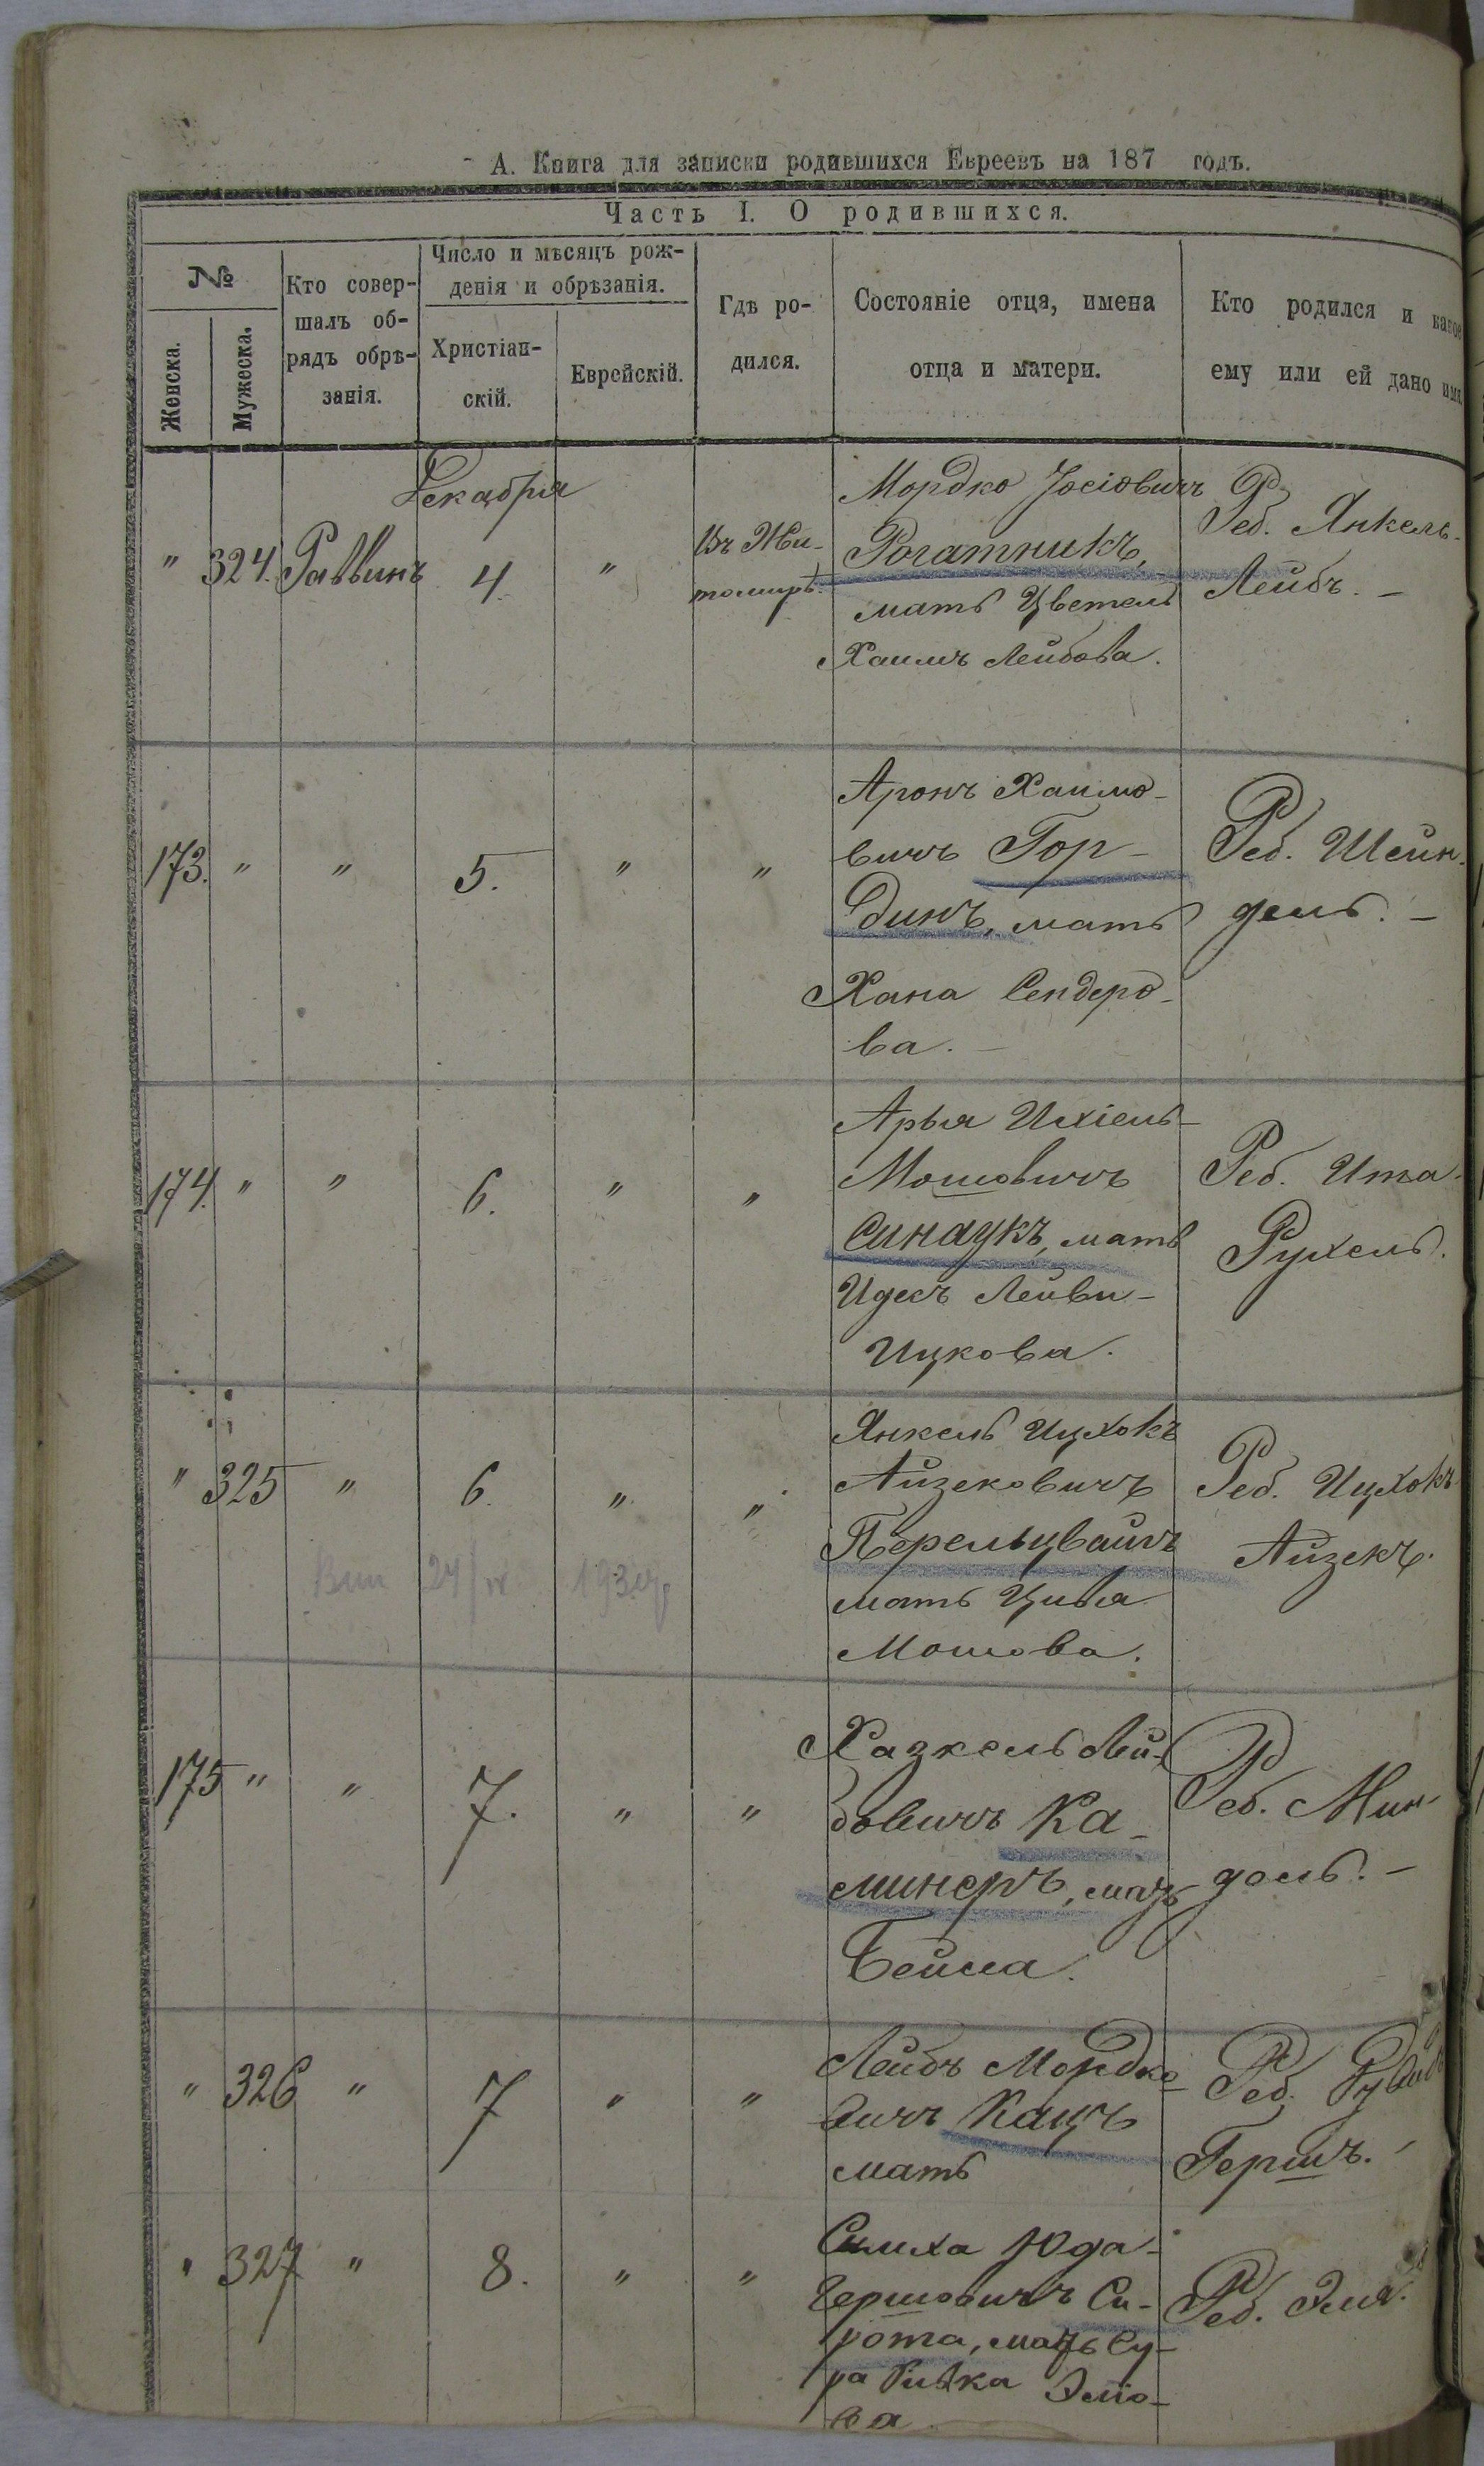 А. Книга для записки родившихся Евреевъ на 187 годъ.
Часть I. О родившихся.
№
Женска.
Мужеска.
Кто совер-
шалъ об-
рядъ обрѣ-
занія.
Число и мѣсяцъ рож-
денія и обрѣзанія.
Христіан-
скій.
Еврейскій.
Гдѣ ро-
дился.
Состояніе отца, имена
отца и матери.
Кто родился и какое
ему или ей дано имя
Декабря
" 324. Раввинъ 4. "
Въ Жи-
томирѣ.
Мордко Іосіовичъ
Рогатникъ,
мать Цветель
Хаимъ Лейбова.
Реб. Янкель-
Лейбъ. –
173. " " 5. " "
Аронъ Хаимо-
вичъ Гор-
динъ, мать
Хана Сендеро-
ва. –
Реб. Шейн-
дель. –
174. " " 6. " "
Арья Ихіель-
Мошовичъ
Синдукъ, мать
Идесъ Лейви-
Ицкова.
Реб. Ита-
Рухель.
" 325 " 6. " "
24/IV
Янкель Ицхокъ
Айзековичъ
Перельцвайгъ
мать Цивья
Мошова.
Реб. Ицхокъ
Айзекъ.
175 " " 7. " "
Хазкель Лей-
бовичъ Ка-
минеръ, мать
Бейла.
Реб. Мин-
дель. –
" 326 " 7 " "
Лейбъ Мордко-
вичъ Кацъ
мать
Реб.
Гершъ. –
" 327 " 8. " "
Симха Юда-
Гершовичъ Си-
рота, мать Су-
ра Ривка Эліо-
ва
Реб. Эля.